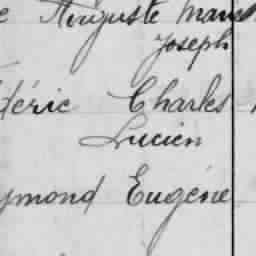 Auguste Marcel
Joseph
déric Charles
Lucien
ymond Eugène